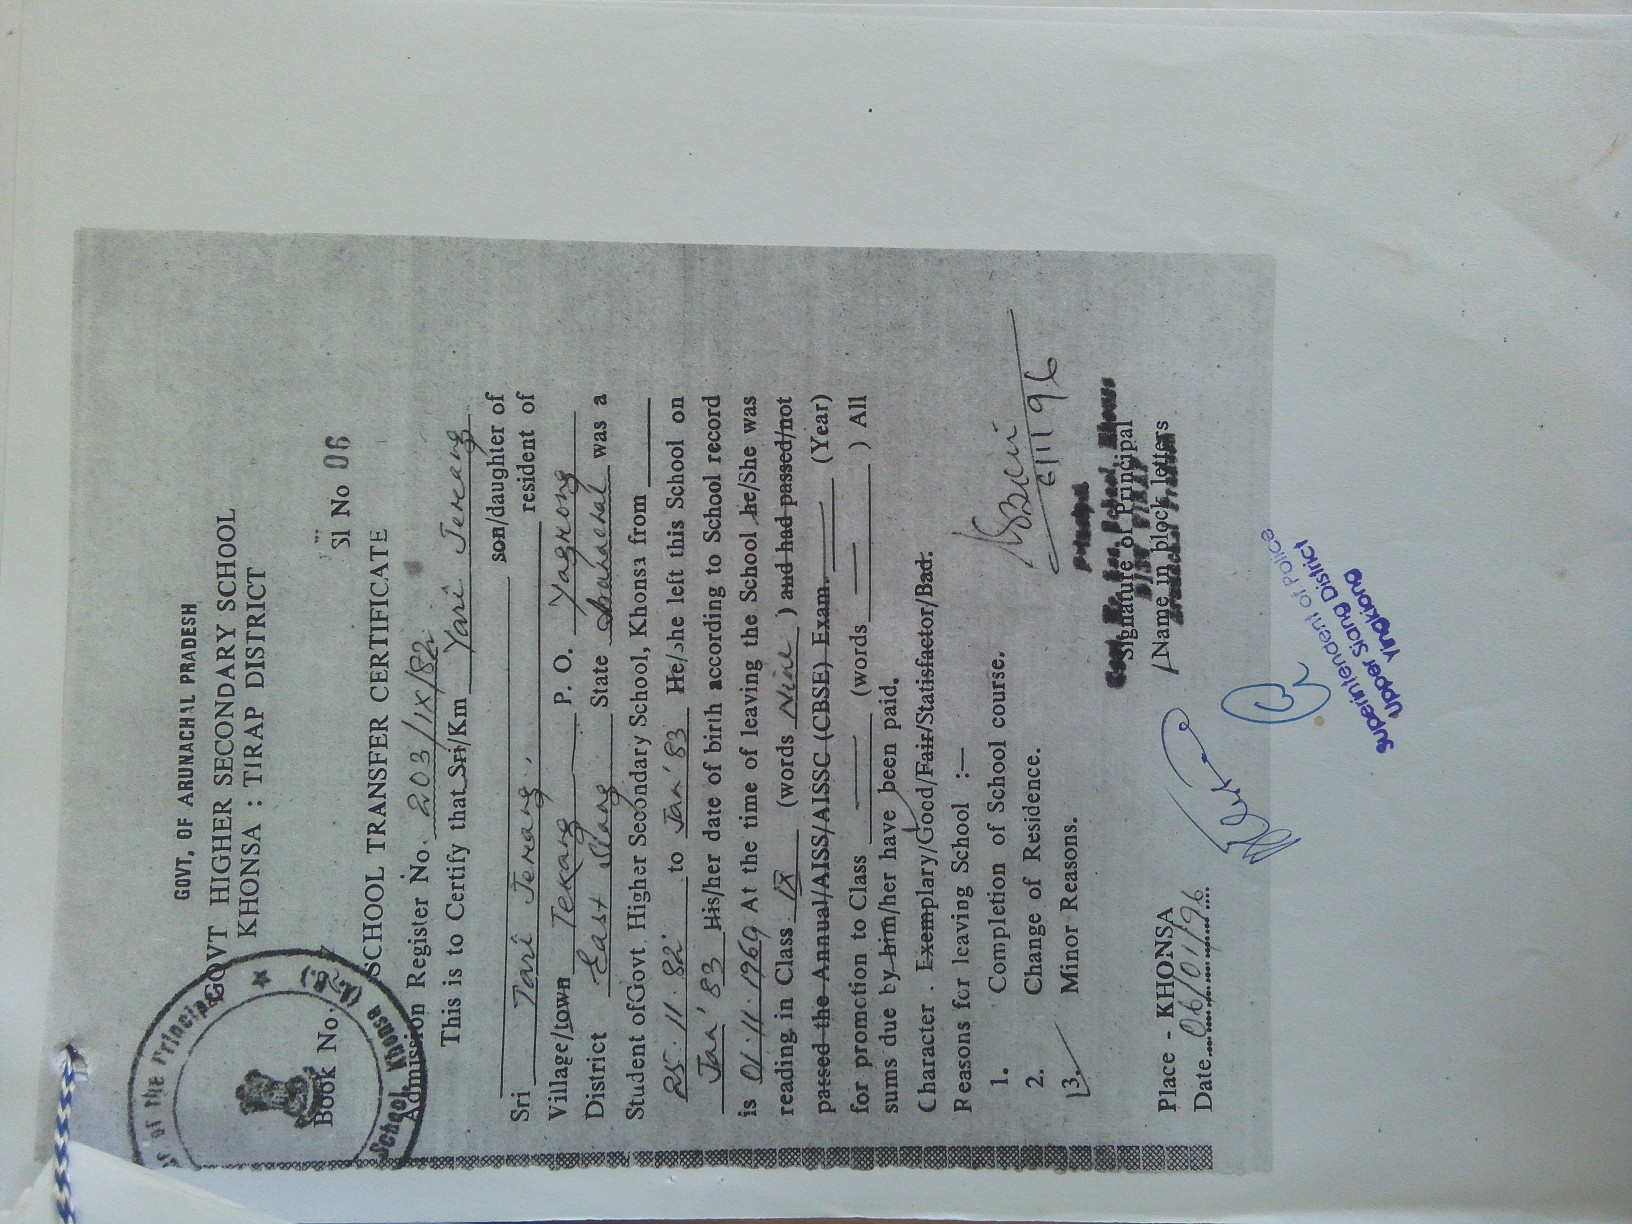 GOVT. OF ARUNACHAL PRADESH
GOVT HIGHER SECONDARY SCHOOL
KHONSA : TIRAP DISTRICT
Book No.
Sl No 06
SCHOOL TRANSFER CERTIFICATE
Admission Register No. 203/IX/82
This is to Certify that Sri/Km Yari Jereang
son/daughter of
Sri Tari Jereang, resident of
Village/town Tekang P. O. Yagrong
District East Siang State Arunachal was a
Student of Govt. Higher Secondary School, Khonsa from
25.11.82 to Jan'83 He/she left this School on
Jan'83 His/her date of birth according to School record
is 01.11.1969 At the time of leaving the School he/She was
reading in Class IX (words Nine ) and had passed/not
passed the Annual/AISS/AISSC (CBSE) Exam. (Year)
for promotion to Class (words ) All
sums due by him/her have been paid.
Character . Exemplary/Good/Fair/Statisfactor/Bad.
Reasons for leaving School :—
1. Completion of School course.
2. Change of Residence.
3. Minor Reasons.
6/1/96
Principal
Signature of Principal
/Name in block letters
Place - KHONSA
Date 06/01/96
of the Principal
School, Khonsa (A.P.)
Superintendent of Police
Upper Siang District
Yingkiong